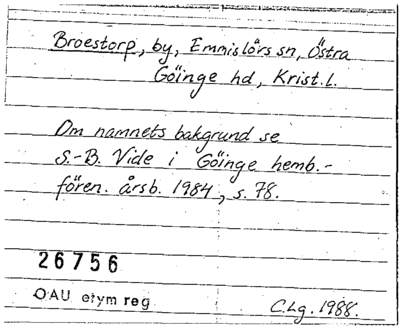 Broestorp, by, Emmislövs sn, Östra
Göinge hd, Krist. l.
Om namnets bakgrund se
S.-B. Vide i Göinge hemb.-
fören. årsb. 1984, s. 78.
26756
OAU etym reg
C.Lg. 1988.